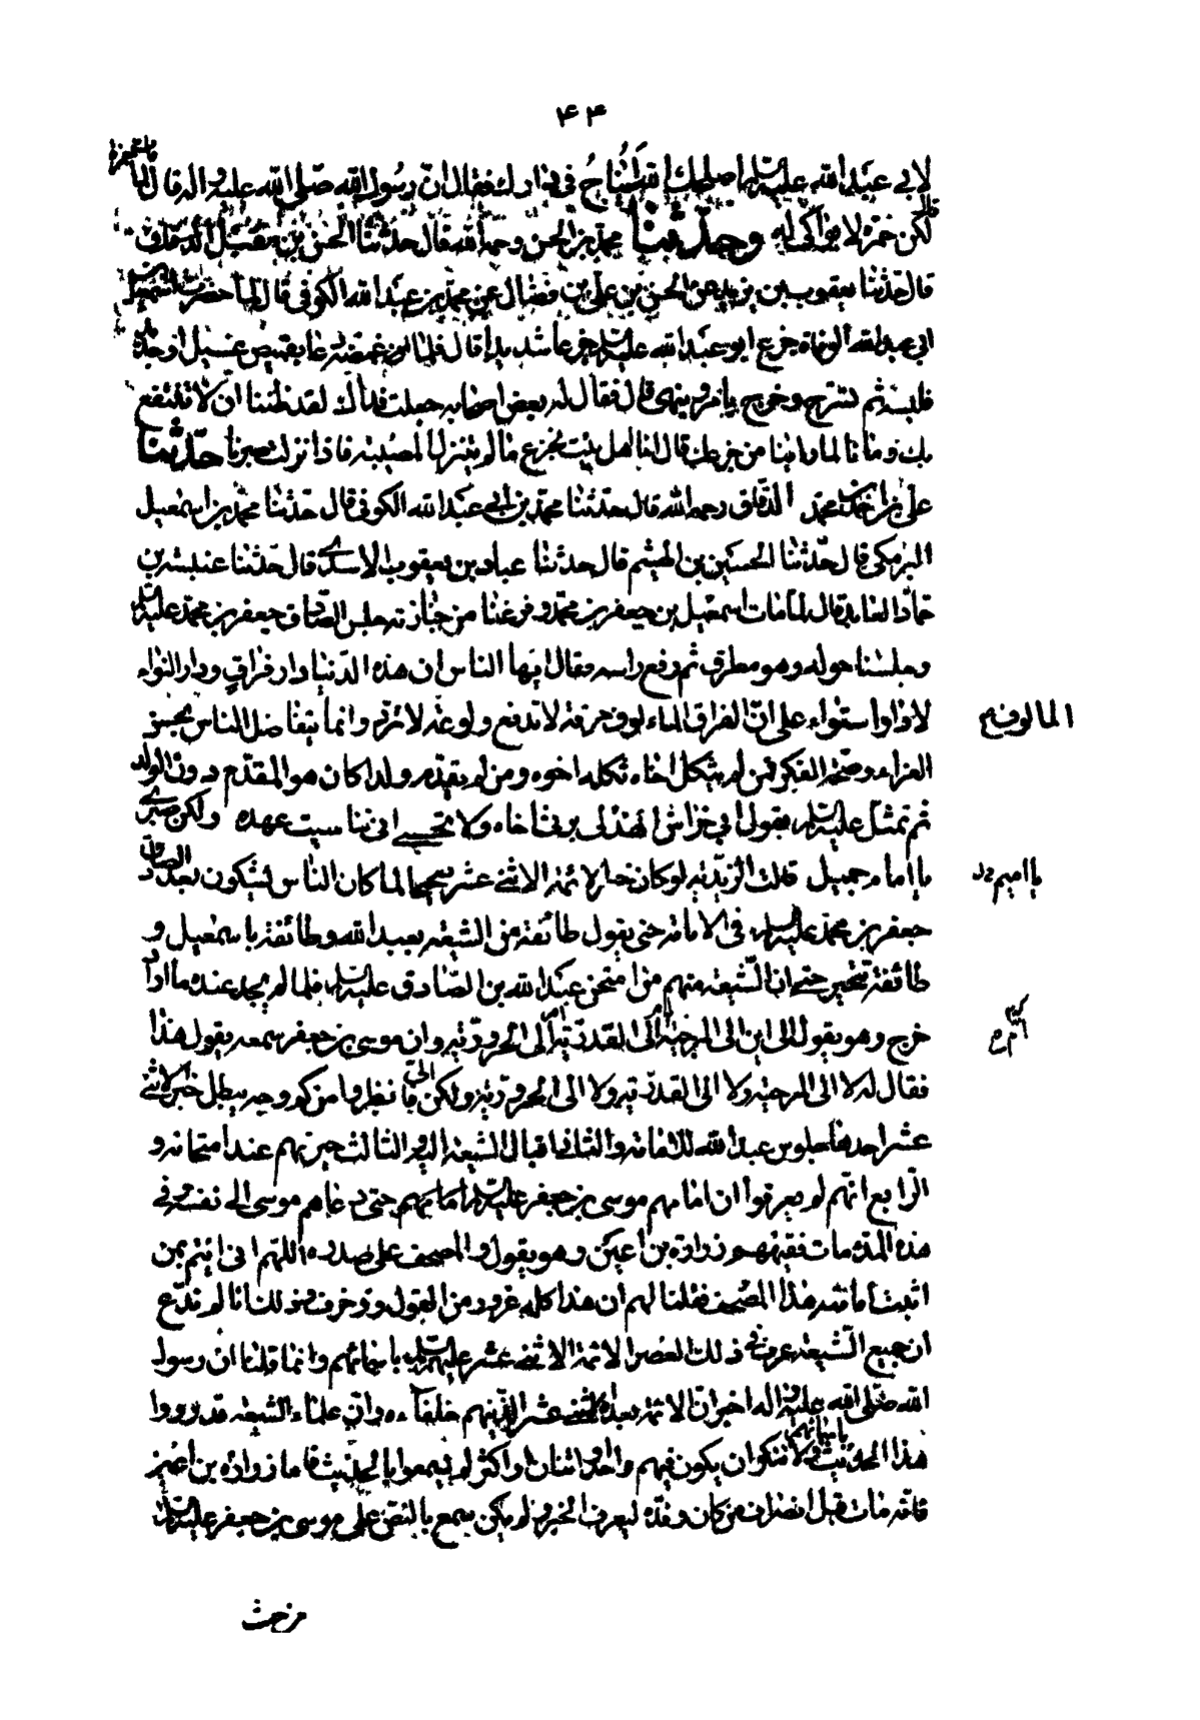 ۴۳
لابي عبد الله عليه السلم اصلحك الله ايناح في دارك فقال ان رسول الله صلى الله عليه واله قال لما مات حمزة
لكن حمزة لا بواكي له وحدثنا محمد بن الحسن رحمه الله قال حدثنا الحسن بن متيل الدقاق
قال حدثنا يعقوب بن يزيد عن الحسن بن علي بن فضال عن محمد بن عبد الله الكوفي قال لما حضرت اسمعيل بن
ابي عبد الله الوفاة جزع ابو عبد الله عليه السلم جزعا شديدا قال فلما ان غمضه دعا بقميص غسيل او جديد
فلبسه ثم تسرح وخرج يامر وينهى قال فقال له بعض اصحابه جعلت فداك لقد ظننا ان لا ننتفع
بك زمانا لما راينا من جزعك قال انا اهل بيت نجزع ما لم تنزل المصيبة فاذا نزلت صبرنا حدثنا
علي بن احمد بن محمد الدقاق رحمه الله قال حدثنا محمد بن ابي عبد الله الكوفي قال حدثنا محمد بن اسمعيل
البرمكي قال حدثنا الحسين بن الهيثم قال حدثنا عباد بن يعقوب الاسدي قال حدثنا عنبسة بن
بجاد العابد قال لما مات اسمعيل بن جعفر بن محمد وفرغنا من جنازته جلس الصادق جعفر بن محمد عليه السلم
وجلسنا حوله وهو مطرق ثم رفع راسه فقال ايها الناس ان هذه الدنيا دار فراق ودار التواء
لا دار استواء على ان لفراق المالوف حرقة لا تدفع ولوعة لا ترد وانما يتفاضل الناس بحسن
المالوف
العزاء وصحة الفكر فمن لم يثكل اخاه ثكله اخوه ومن لم يقدم ولدا كان هو المقدم دون الولد
ثم تمثل عليه السلم بقول ابي خراش الهذلي يرثي اخاه ولا تحسبي اني تناسيت عهده ولكن صبري
يا امام جميل قالت الزيدية لو كان خبر الائمة الاثنى عشر صحيحا لما كان الناس يشكون بعد الصادق
يا اميم
جعفر بن محمد عليه السلم في الامامة حتى يقول طائفة من الشيعة بعبد الله وطائفة باسمعيل و
طائفة تتحير حتى ان الشيعة منهم من امتحن عبد الله بن الصادق عليه السلم فلما لم يجد عنده ما اراد
خرج وهو يقول الى اين الى المرجئة ام الى القدرية ام الى الحرورية وان موسى بن جعفر سمعه يقول هذا
فقال له لا الى المرجئة ولا الى القدرية ولا الى الحرورية ولكن الي فانظروا من كم وجه يبطل خبر الاثنى
عشر احدها جلوس عبد الله للامامة والثاني اقبال الشيعة اليه والثالث حيرتهم عند امتحانه و
الرابع انهم لم يعرفوا ان امامهم موسى بن جعفر عليه السلم حتى دعاهم موسى الى نفسه وفي
هذه المدة مات فقيههم زرارة بن اعين وهو يقول والمصحف على صدره اللهم اني ائتم بمن
اثبت امامته هذا المصحف فقلنا لهم ان هذا كله غرور من القول وزخرف وذلك انا لم ندع
ان جميع الشيعة عرف في ذلك العصر الائمة الاثنى عشر عليهم السلم باسمائهم وانما قلنا ان رسول
الله صلى الله عليه واله اخبر ان الائمة بعده اثنى عشر الذينهم خلفاءه وان علماء الشيعة قد رووا
هذا الحديث باسمائهم ولا ننكر ان يكون فيهم واحد او اثنان او اكثر لم يسمعوا بالحديث فاما زرارة بن اعين
فانه مات قبل انصراف من كان وفده ليعرف الخبر ولم يكن سمع بالنص على موسى بن جعفر عليه السلم
من حيث